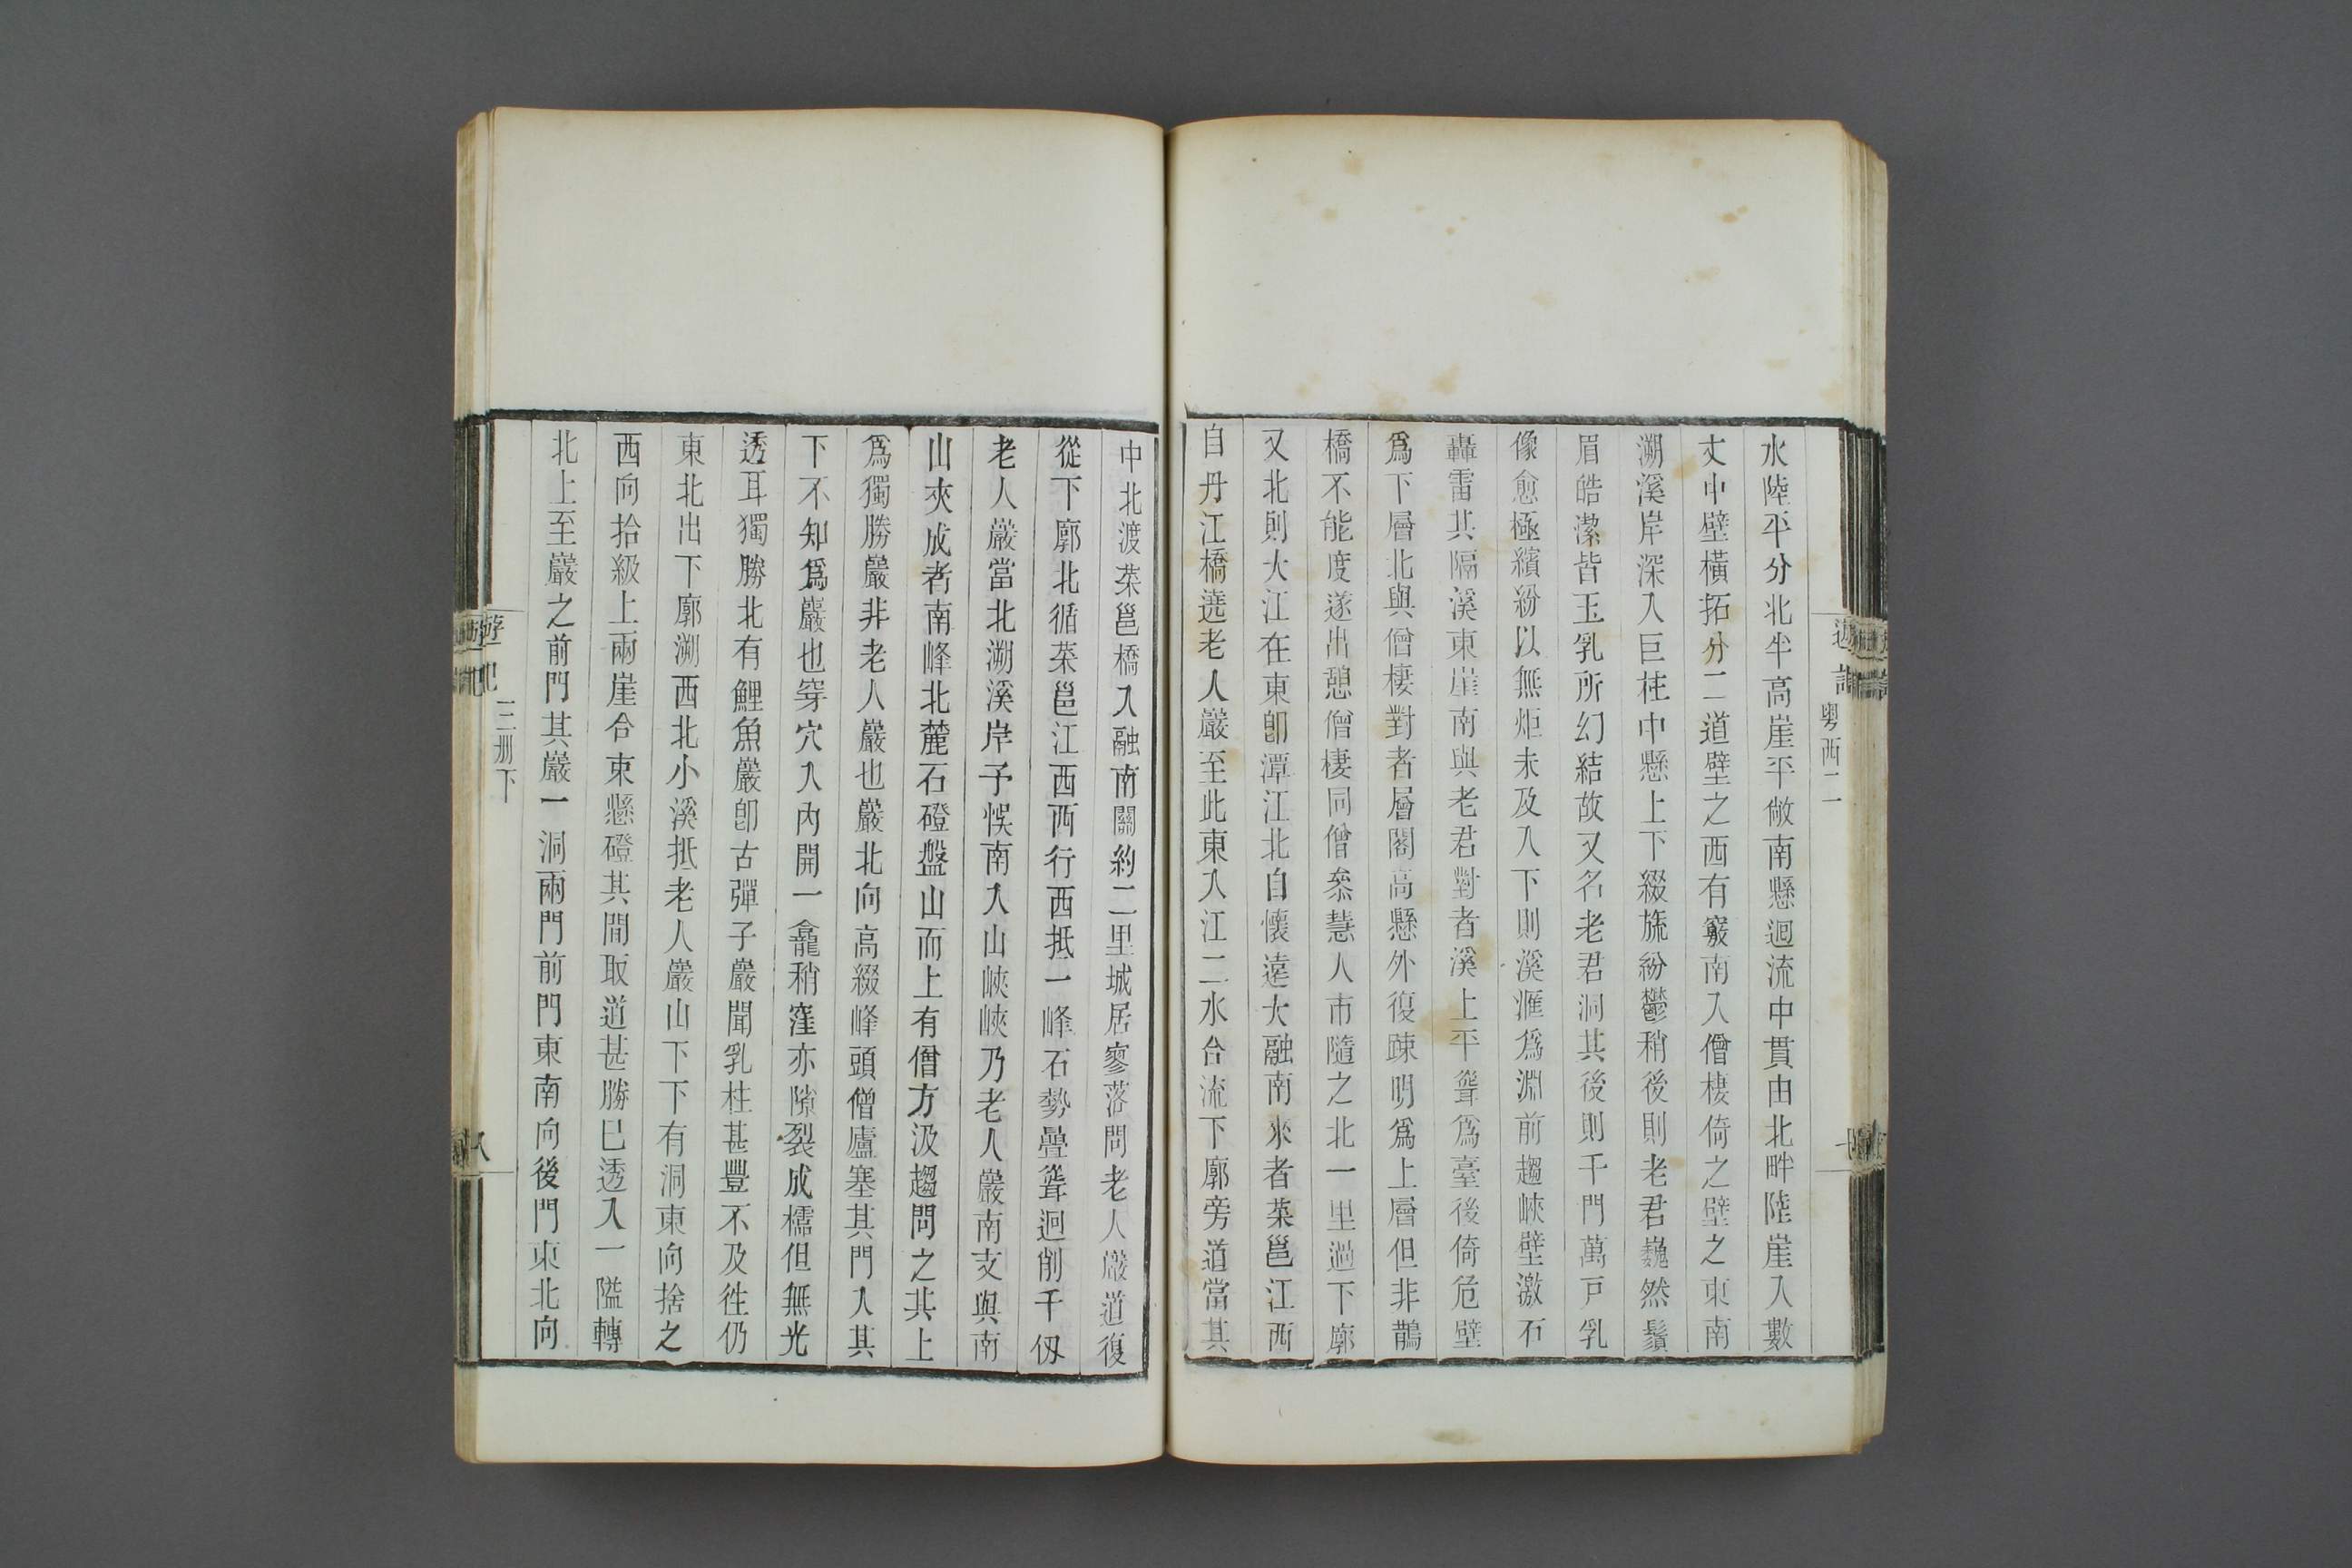 遊記 粵西二
水陸平分北半高崖平敞南懸迴流中貫由北畔陸崖入數
丈中壁橫拓分二道壁之西有竅南入僧棲倚之壁之東南
溯溪岸深入巨柱中懸上下綴旒紛鬱稍後則老君巍然鬚
眉皓潔皆玉乳所幻結故又名老君洞其後則千門萬戸乳
像愈極繽紛以無炬未及入下則溪滙爲淵前趨峽壁激石
轟雷其隔溪東崖南與老君對者溪上平聳爲臺後倚危壁
爲下層北與僧棲對者層閣高懸外復疎明爲上層但非鵲
橋不能度遂出憩僧棲同僧叅慧人市隨之北一里過下廓
又北則大江在東卽潭江北自懷遠大融南來者菜邕江西
自丹江橋遶老人巖至此東入江二水合流下廓旁道當其
中北渡菜邕橋入融南關約二里城居寥落問老人巖道復
從下廓北循菜邕江西西行西抵一峰石勢疊聳迴削千仭
老人巖當北溯溪岸予悞南入山峽峽乃老人巖南支與南
山夾成者南峰北麓石磴盤山而上有僧方汲趨問之其上
爲獨勝巖非老人巖也巖北向高綴峰頭僧廬塞其門入其
下不知爲巖也穿穴入內開一龕稍窪亦隙裂成櫺但無光
透耳獨勝北有鯉魚巖卽古彈子巖聞乳柱甚豐不及徃仍
東北出下廓溯西北小溪抵老人巖山下下有洞東向捨之
西向拾級上兩崖合束懸磴其間取道甚勝已透入一隘轉
北上至巖之前門其巖一洞兩門前門東南向後門東北向
遊記 三册下 八